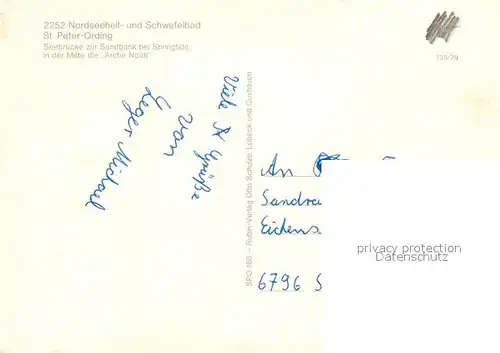 2252 Nordseeheil- und Schwefelbad
St. Peter-Ording
Seebrücke zur Sandbank bei Springtide,
in der Mitte die „Arche Noah"
135/79
Viele Grüße
von
Michael
SPO 168 – Rubin-Verlag Otto Schulze, Lübeck und Cuxhaven
An
Sandra
Eichens
6796 S
privacy protection
Datenschutz